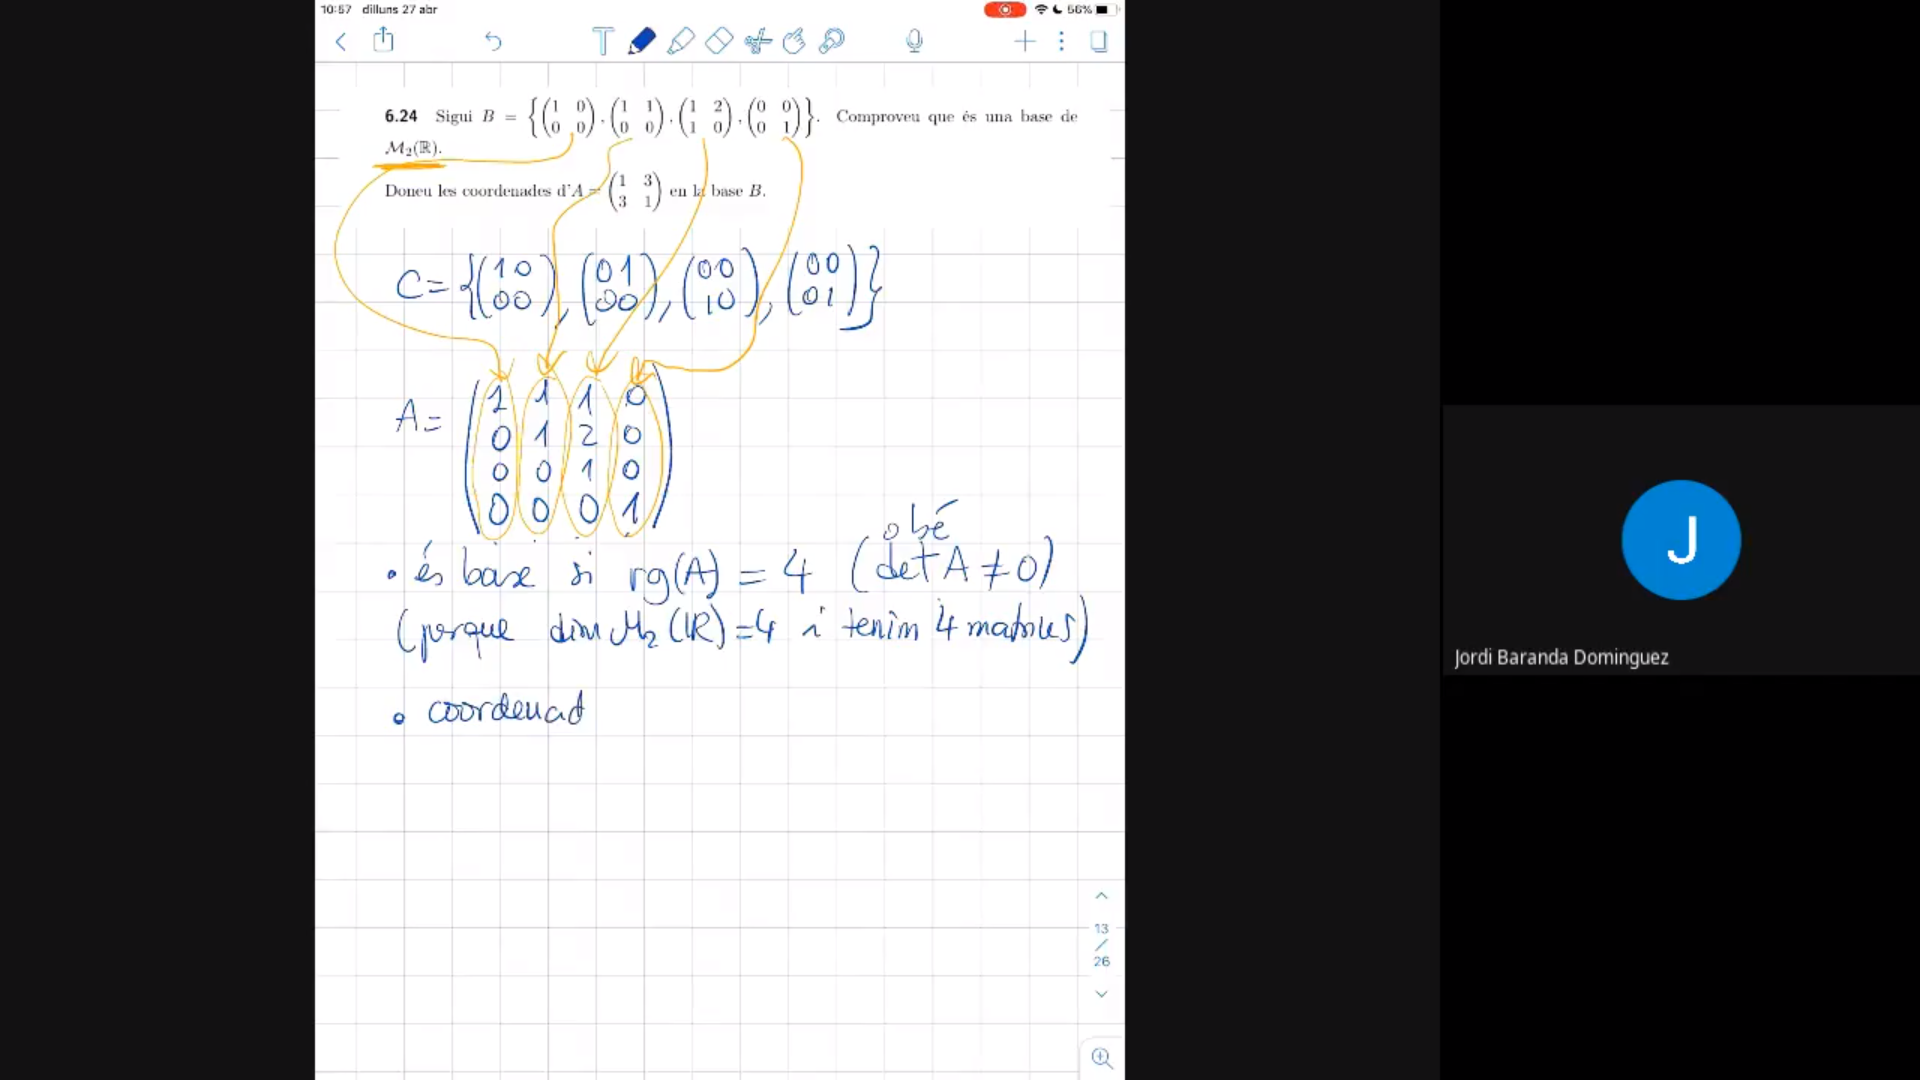 10:57 dilluns 27 abr 56%
T
6.24 Sigui B = {(1 0 / 0 0), (1 1 / 0 0), (1 2 / 1 0), (0 0 / 0 1)}. Comproveu que és una base de
M₂(ℝ).
Doneu les coordenades d'A = (1 3 / 3 1) en la base B.
C = {(1 0 / 0 0), (0 1 / 0 0), (0 0 / 1 0), (0 0 / 0 1)}
A =
1 1 1 0
0 1 2 0
0 0 1 0
0 0 0 1
• és base si rg(A) = 4 (o bé det A ≠ 0)
(perque dim M₂(ℝ) = 4 i tenim 4 matrius)
• coordenad
13
/
26
J
Jordi Baranda Dominguez